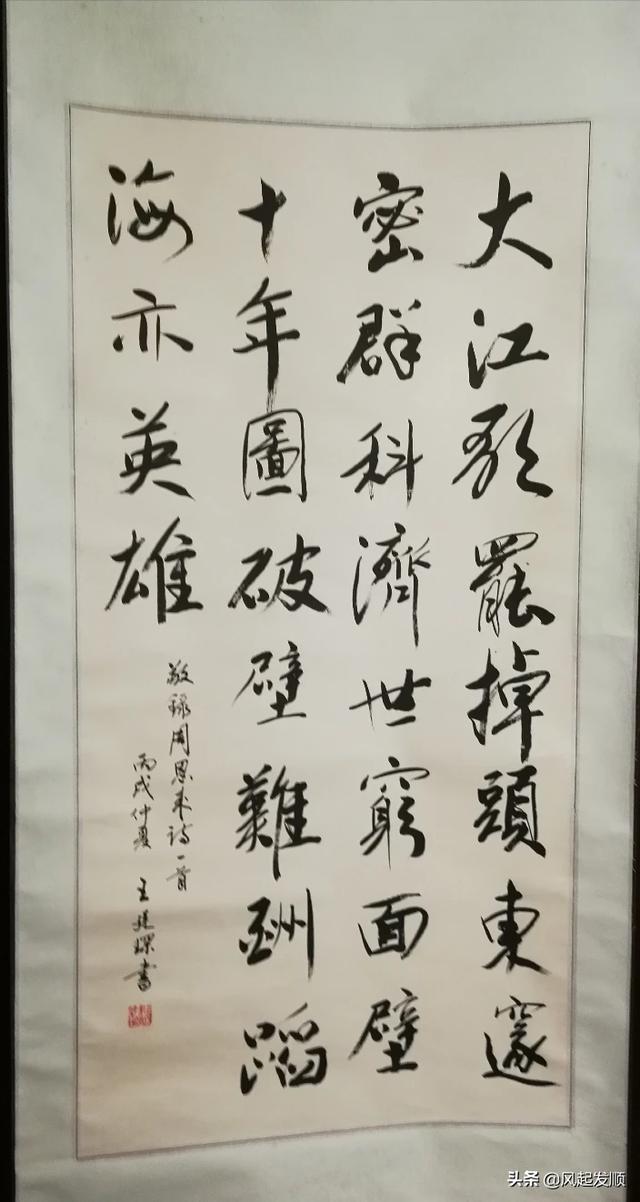 大江歌罷掉頭東邃
密群科濟世窮面壁
十年圖破壁難酬蹈
海亦英雄
敬録周恩来詩一首
丙戌仲夏 王建 書
头条 @风起发顺